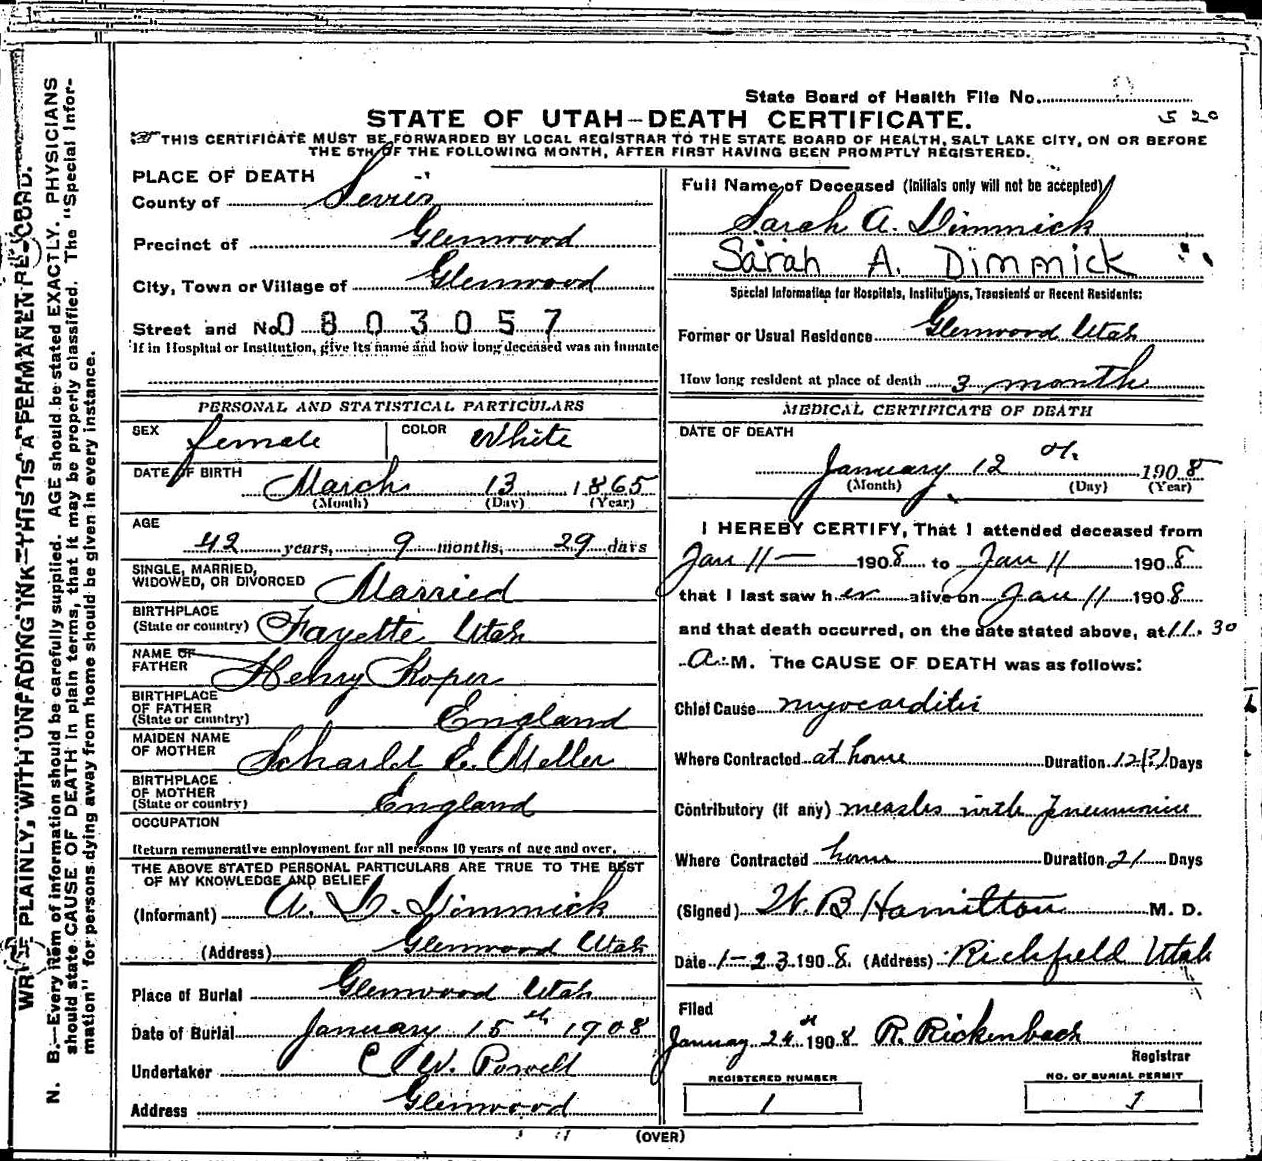 State Board of Health File No.
5 20
STATE OF UTAH—DEATH CERTIFICATE.
THIS CERTIFICATE MUST BE FORWARDED BY LOCAL REGISTRAR TO THE STATE BOARD OF HEALTH, SALT LAKE CITY, ON OR BEFORE
THE 5TH OF THE FOLLOWING MONTH, AFTER FIRST HAVING BEEN PROMPTLY REGISTERED.
WRITE PLAINLY, WITH UNFADING INK—THIS IS A PERMANENT RECORD.
N. B.—Every item of information should be carefully supplied. AGE should be stated EXACTLY. PHYSICIANS
should state CAUSE OF DEATH in plain terms, that it may be properly classified. The "Special Infor-
mation" for persons dying away from home should be given in every instance.
PLACE OF DEATH
County of Sevier
Precinct of Glenwood
City, Town or Village of Glenwood
Street and No. 0803057
If in Hospital or Institution, give its name and how long deceased was an inmate
PERSONAL AND STATISTICAL PARTICULARS
SEX female COLOR White
DATE OF BIRTH March 13 1865
(Month) (Day) (Year)
AGE
42 years, 9 months, 29 days
SINGLE, MARRIED,
WIDOWED, OR DIVORCED Married
BIRTHPLACE
(State or country) Fayette Utah
NAME OF
FATHER Henry Roper
BIRTHPLACE
OF FATHER
(State or country) England
MAIDEN NAME
OF MOTHER Scharld E. Meller
BIRTHPLACE
OF MOTHER
(State or country) England
OCCUPATION
Return remunerative employment for all persons 10 years of age and over.
THE ABOVE STATED PERSONAL PARTICULARS ARE TRUE TO THE BEST
OF MY KNOWLEDGE AND BELIEF
(Informant) A. D. Dimmick
(Address) Glenwood Utah
Place of Burial Glenwood Utah
Date of Burial January 15th 1908
Undertaker C W. Powell
Address Glenwood
Full Name of Deceased (Initials only will not be accepted)
Sarah A. Dimmick
Sarah A. Dimmick
Special Information for Hospitals, Institutions, Transients or Recent Residents:
Former or Usual Residence Glenwood Utah
How long resident at place of death 3 month
MEDICAL CERTIFICATE OF DEATH
DATE OF DEATH
January 12 th 1908
(Month) (Day) (Year)
I HEREBY CERTIFY, That I attended deceased from
Jan 11 — 1908 to Jan 11 1908
that I last saw her alive on Jan 11 1908
and that death occurred, on the date stated above, at 11.30
A. M. The CAUSE OF DEATH was as follows:
Chief Cause myocarditis
Where Contracted at home Duration 12(?) Days
Contributory (if any) measles with pneumonia
Where Contracted home Duration 21 Days
(Signed) W. B Hamilton M. D.
Date 1-23 1908. (Address) Richfield Utah
Filed
January 24th 1908 R. Rickenbach
Registrar
REGISTERED NUMBER NO. OF BURIAL PERMIT
1 1
(OVER)